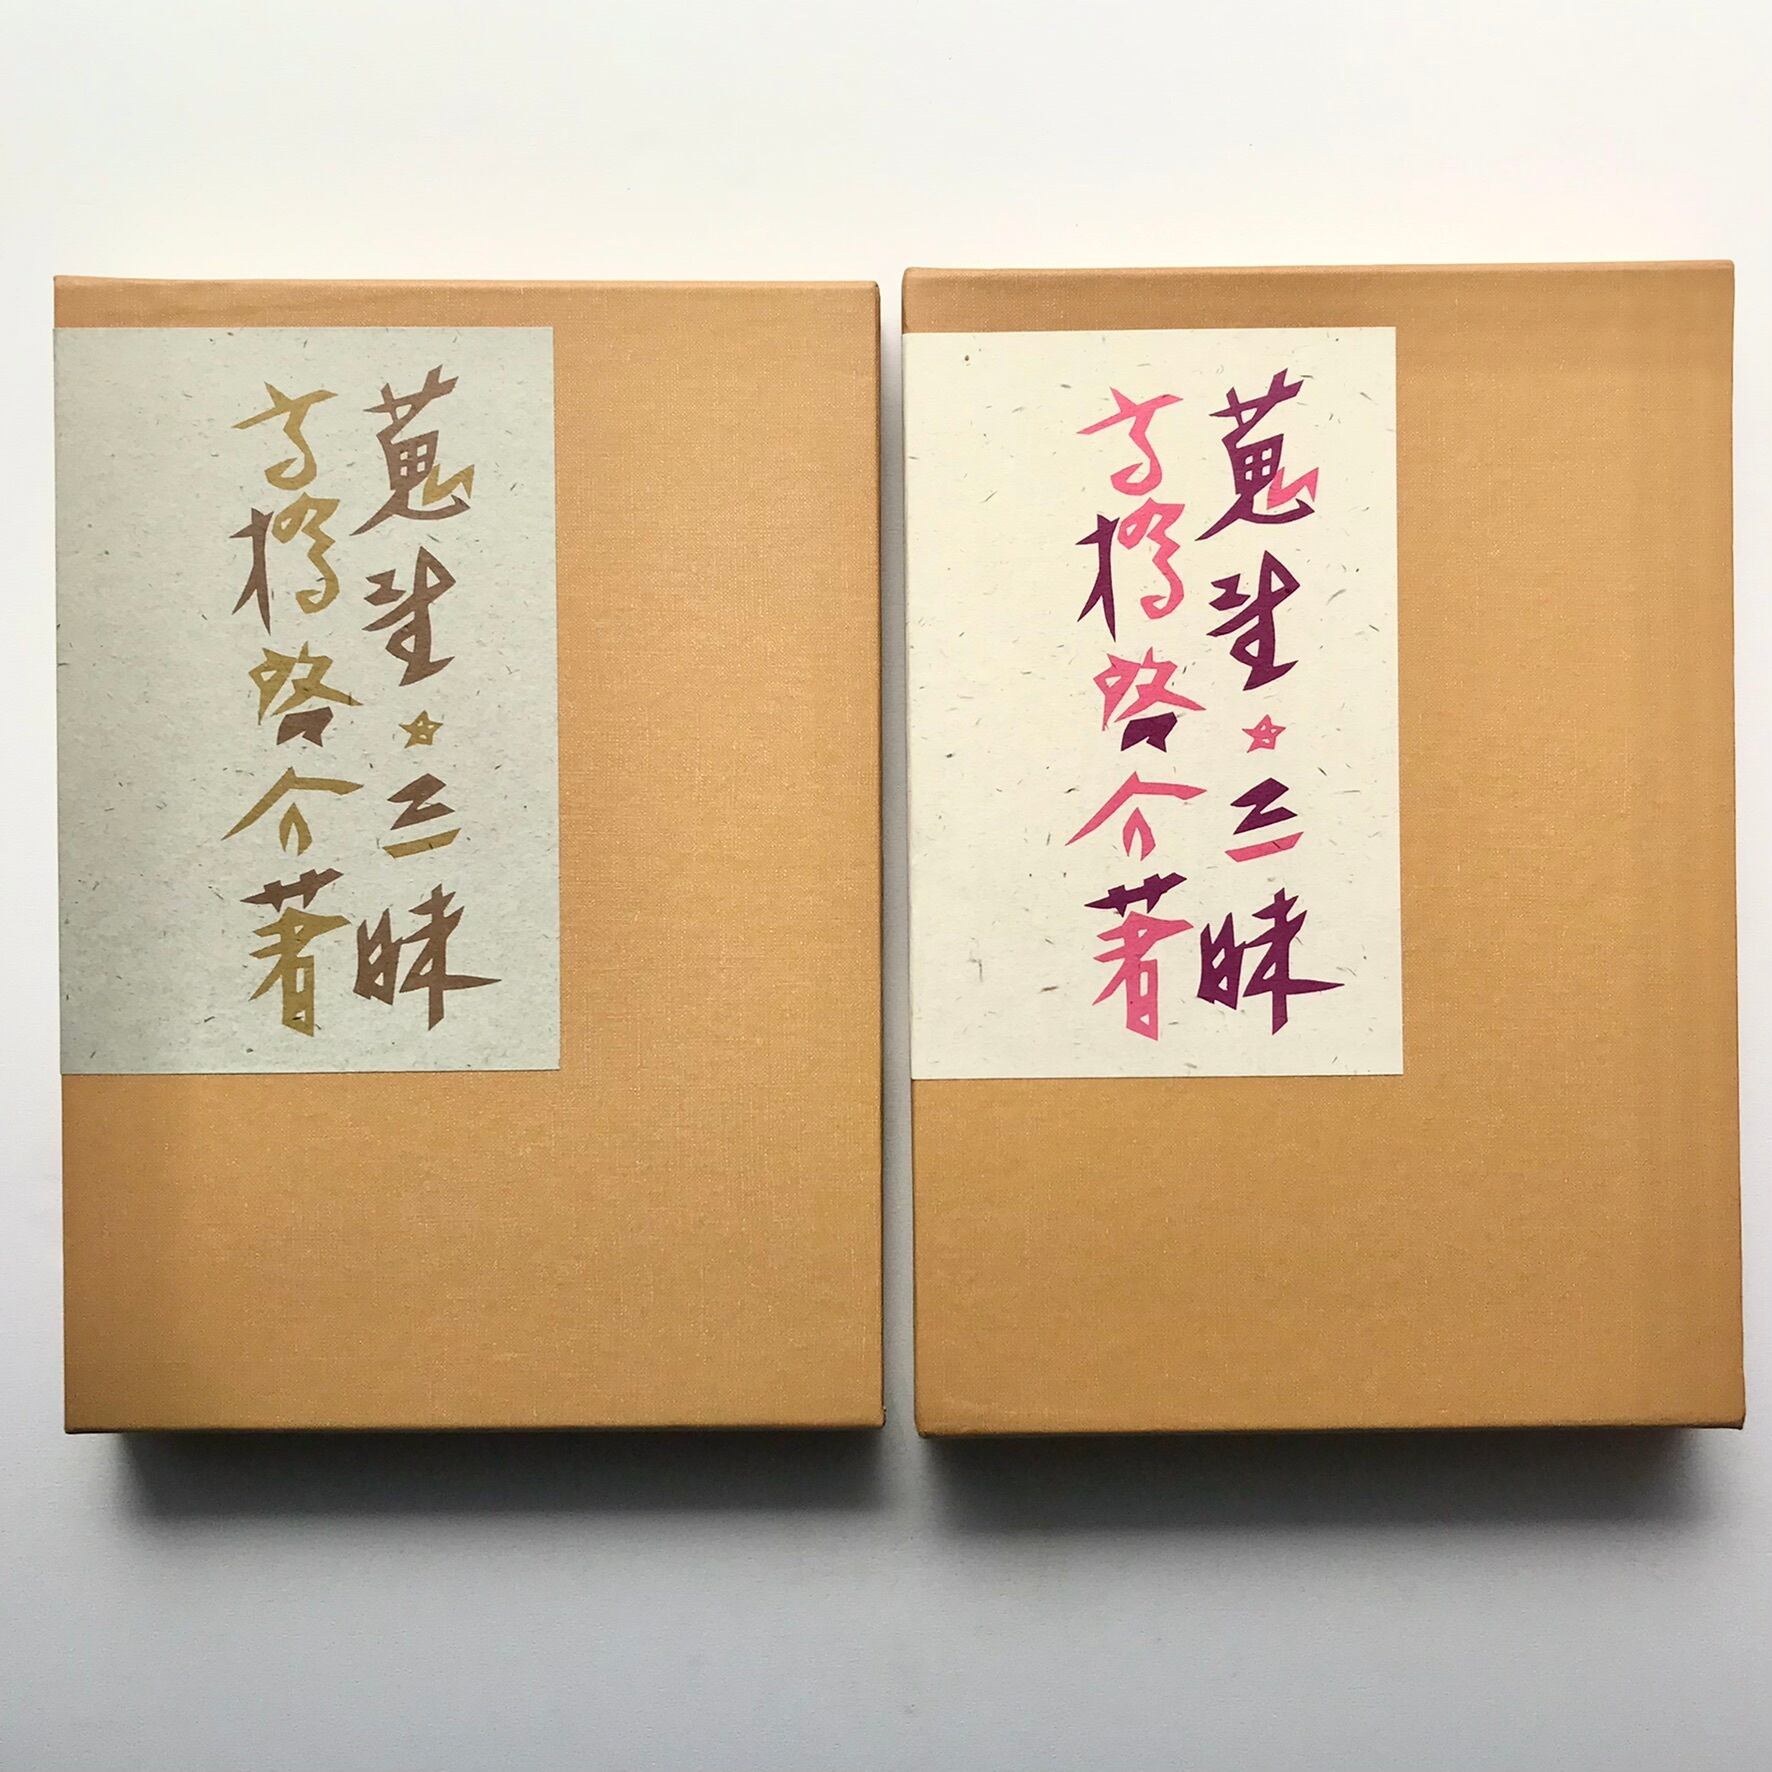 蒐集☆三昧
高橋啓介著
蒐集☆三昧
高橋啓介著